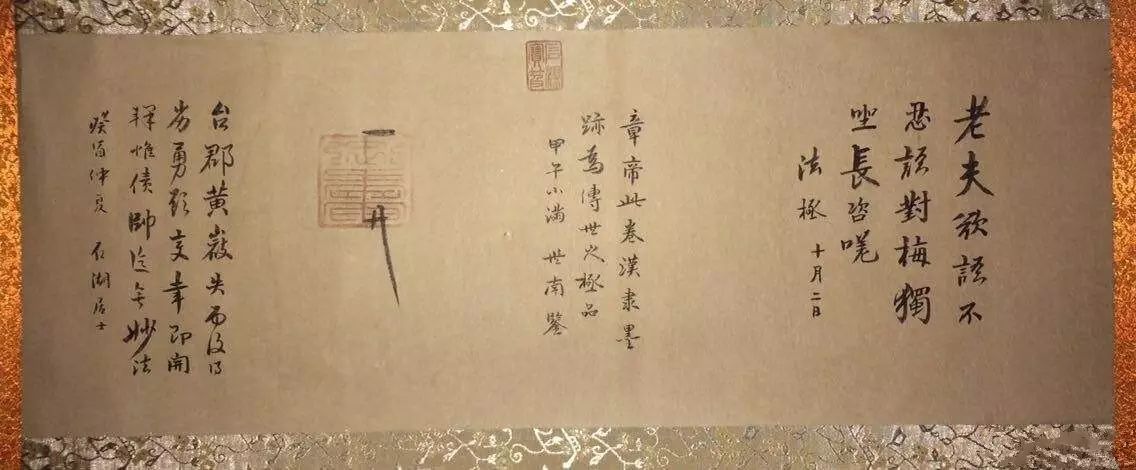 老夫欲語不
忍語對梅獨
坐長咨嗟
法極 十月二日
章帝此卷漢隶墨
跡為傳世之極品
甲午小滿 世南鑒
台郡黃巖失而復得
勇 即開
惟債帥 妙法
癸酉仲夏 石湖居士